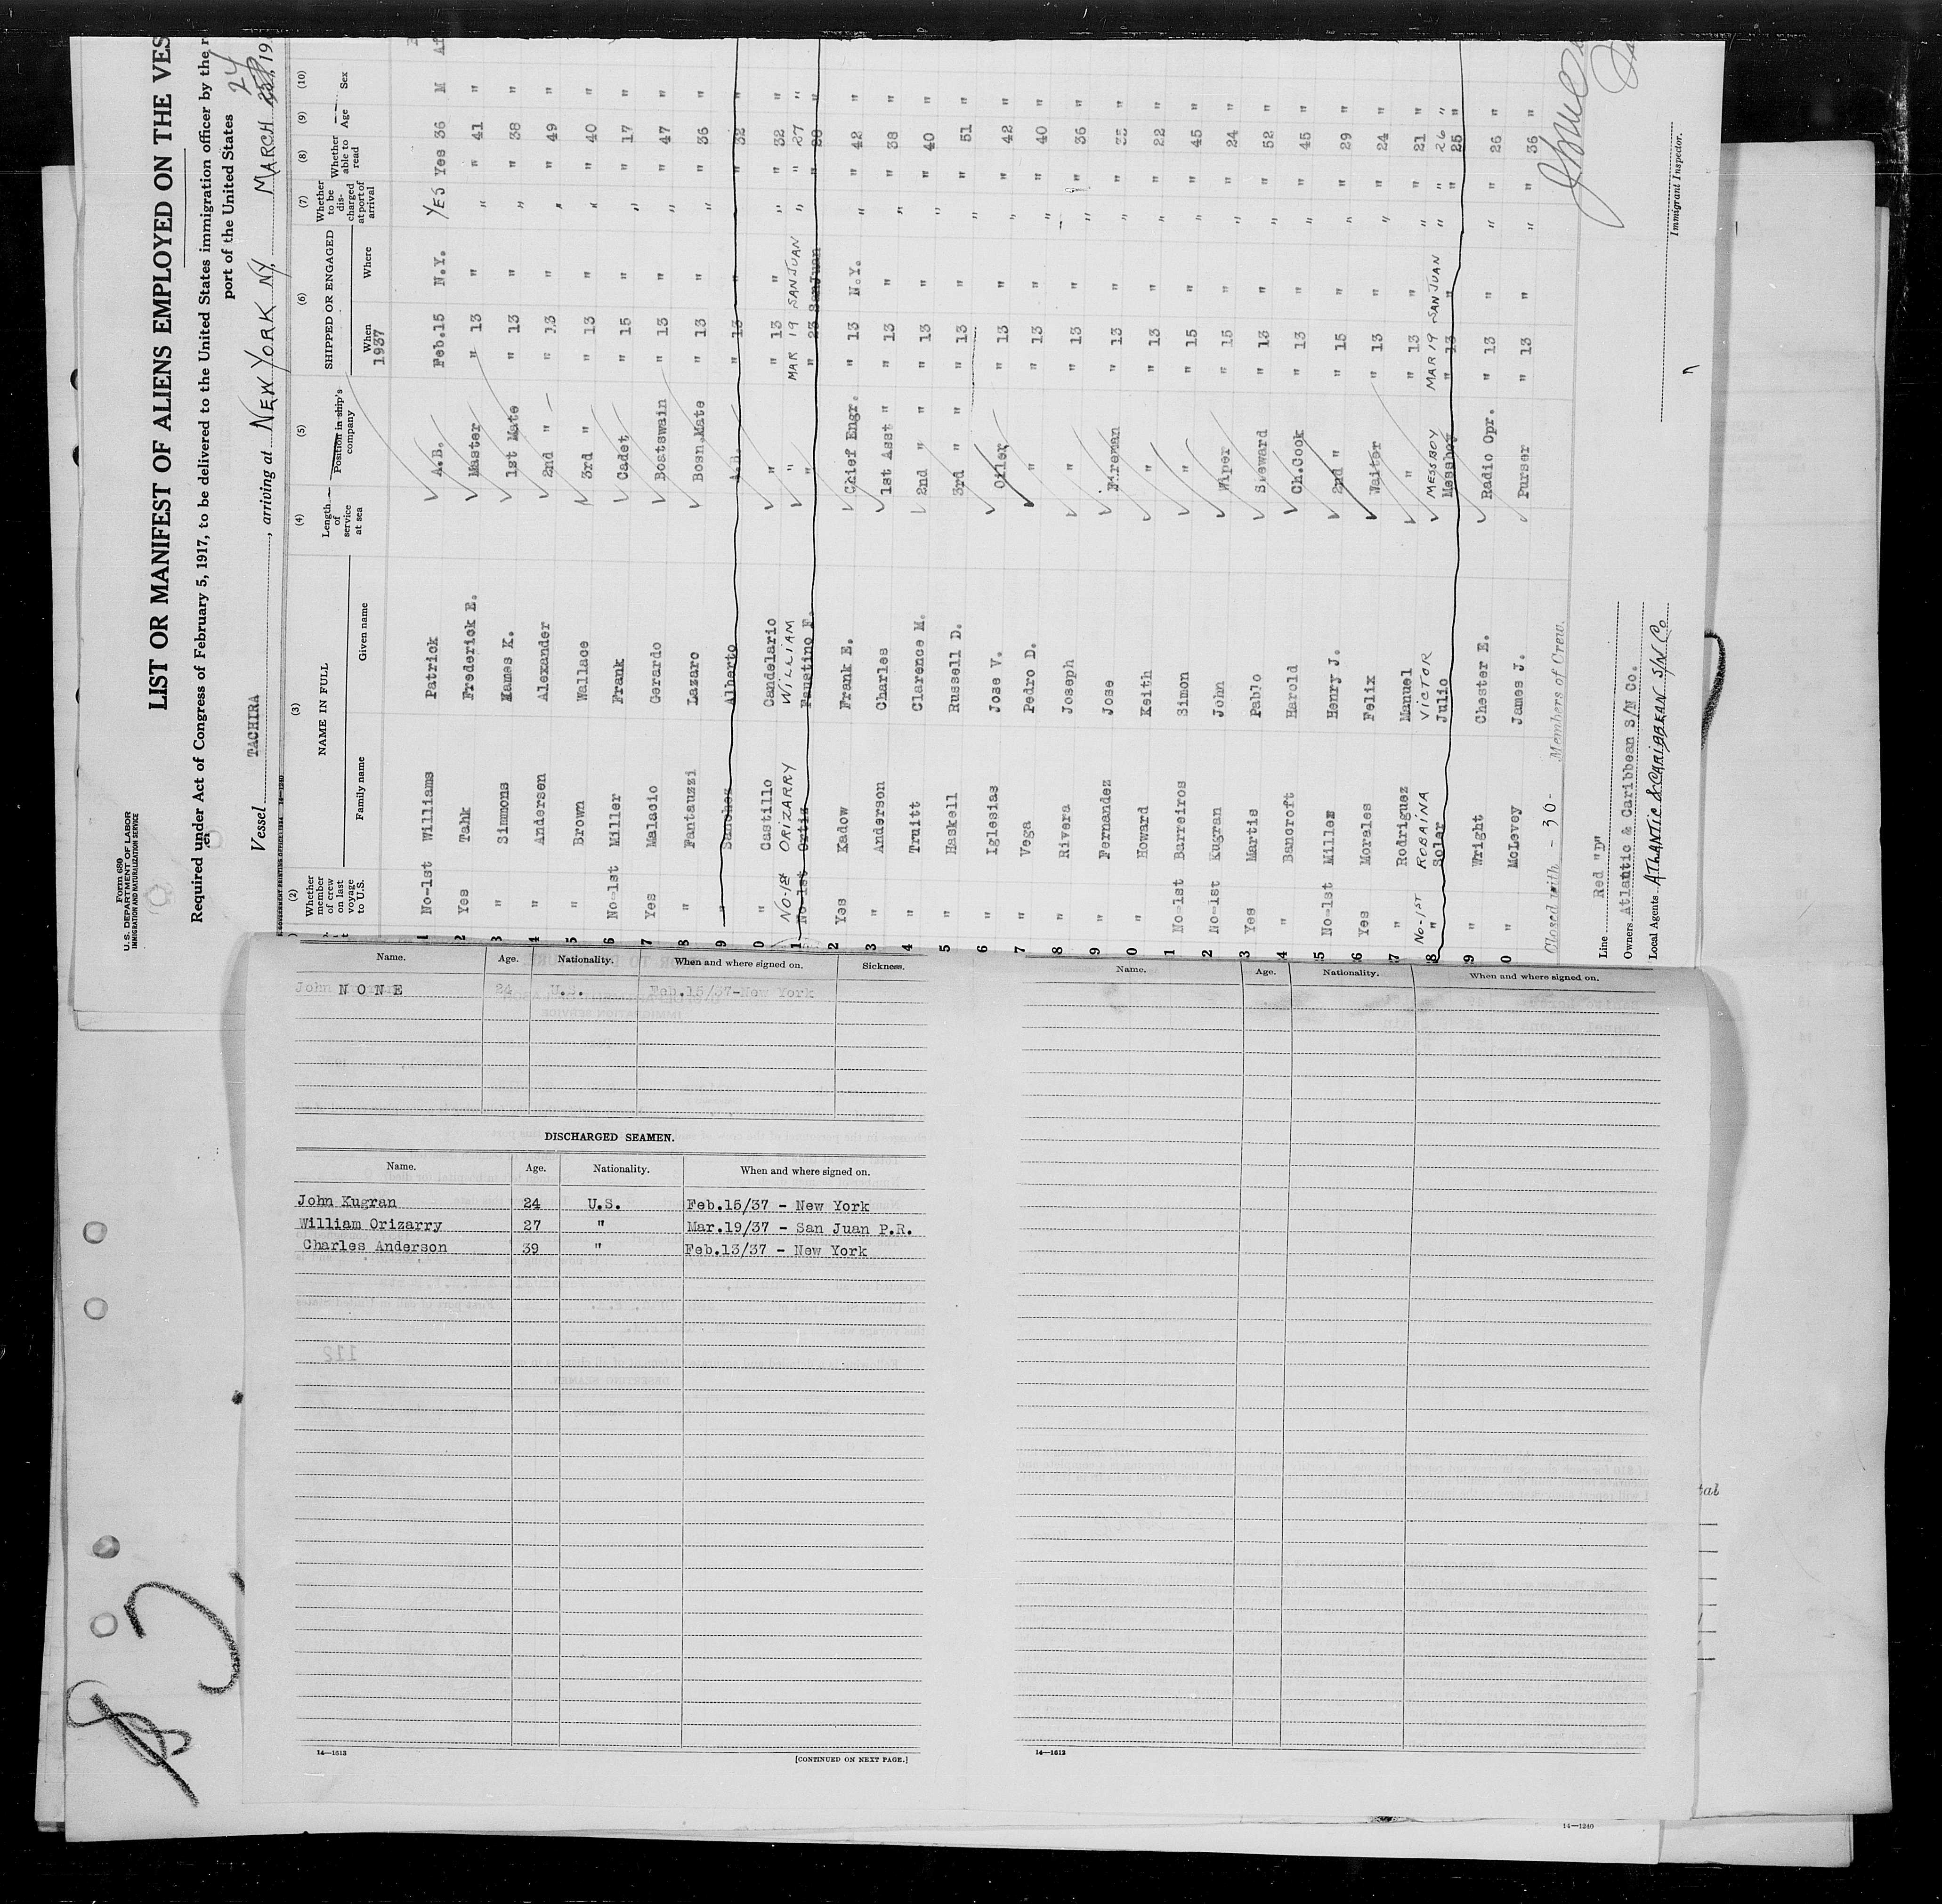 Form 680
U. S. DEPARTMENT OF LABOR
IMMIGRATION AND NATURALIZATION SERVICE
LIST OR MANIFEST OF ALIENS EMPLOYED ON THE VES
Required under Act of Congress of February 5, 1917, to be delivered to the United States immigration officer by the r
port of the United States
Vessel TACHIRA, arriving at NEW YORK NY, MARCH 24, 19
(2) (3) (4) (5) (6) (7) (8) (9) (10)
Whether member of crew on last voyage to U.S. NAME IN FULL Family name Given name Length of service at sea Position in ship's company SHIPPED OR ENGAGED When 1937 Where Whether to be discharged at port of arrival Whether able to read Age Sex
1 No-1st Williams Patrick A.B. Feb.15 N.Y. YES Yes 36 M
2 Yes Tahk Frederick E. Master " 13 " " " 41 "
3 " Simmons Kames K. 1st Mate " 13 " " " 38 "
4 " Andersen Alexander 2nd " " 13 " " " 49 "
5 " Brown Wallace 3rd " " 13 " " " 40 "
6 No-1st Miller Frank Cadet " 15 " " " 17 "
7 Yes Malacio Gerardo Boatswain " 13 " " " 47 "
8 " Fantauzzi Lazaro Bosn.Mate " 13 " " " 36 "
9 " Sanchez Alberto A.B. " 13 " " 32 "
0 " Castillo Candelario " " 13 " " " 32 "
NO-1st ORIZARRY WILLIAM " MAR 19 SAN JUAN " " 27 "
1 No-1st Ortiz Faustino F. " " 23 SanJuan " 28 "
2 Yes Kadow Frank E. Chief Engr. " 13 N.Y. " " 42 "
3 " Anderson Charles 1st Asst " " 13 " " " 38 "
4 " Truitt Clarence M. 2nd " " " 13 " " " 40 "
5 " Haskell Russell D. 3rd " " " 13 " " " 51 "
6 " Iglesias Jose V. Oiler " 13 " " " 42 "
7 " Vega Pedro D. " " 13 " " " 40 "
8 " Rivera Joseph " " 13 " " " 36 "
9 " Fernandez Jose Fireman " 13 " " "
0 " Howard Keith " " 13 " " " 22 "
1 No-1st Barreiros Simon " " 15 " " " 45 "
2 No-1st Kugran John Wiper " 15 " " " 24 "
3 Yes Martis Pablo Steward " 13 " " " 52 "
4 " Bancroft Harold Ch.Cook " 13 " " " 45 "
5 No-1st Miller Henry J. 2nd " " 15 " " " 29 "
6 Yes Morales Felix Waiter " 13 " " " 24 "
7 " Rodriguez Manuel " " 13 " " " 21 "
No-1ST ROBAINA VICTOR MESSBOY MAR 19 SAN JUAN " " 26 "
8 " Soler Julio Messboy " 13 " " 25 "
9 " Wright Chester E. Radio Opr. " 13 " " " 26 "
0 " McLevey James J. Purser " 13 " " " 36 "
Closed with - 30 - Members of Crew.
Line Red "D"
Owners Atlantic & Caribbean S/N Co.
Local Agents ATLANTIC & CARIBBEAN S/N Co
Immigrant Inspector.
Name. Age. Nationality. When and where signed on. Sickness.
N O N E
John 24 U.S. Feb.15/37-New York
DISCHARGED SEAMEN.
Name. Age. Nationality. When and where signed on.
John Kugran 24 U.S. Feb.15/37 - New York
William Orizarry 27 " Mar.19/37 - San Juan P.R.
Charles Anderson 39 " Feb.13/37 - New York
14—1613
[CONTINUED ON NEXT PAGE.]
Name. Age. Nationality. When and where signed on.
14—1613
14—1240